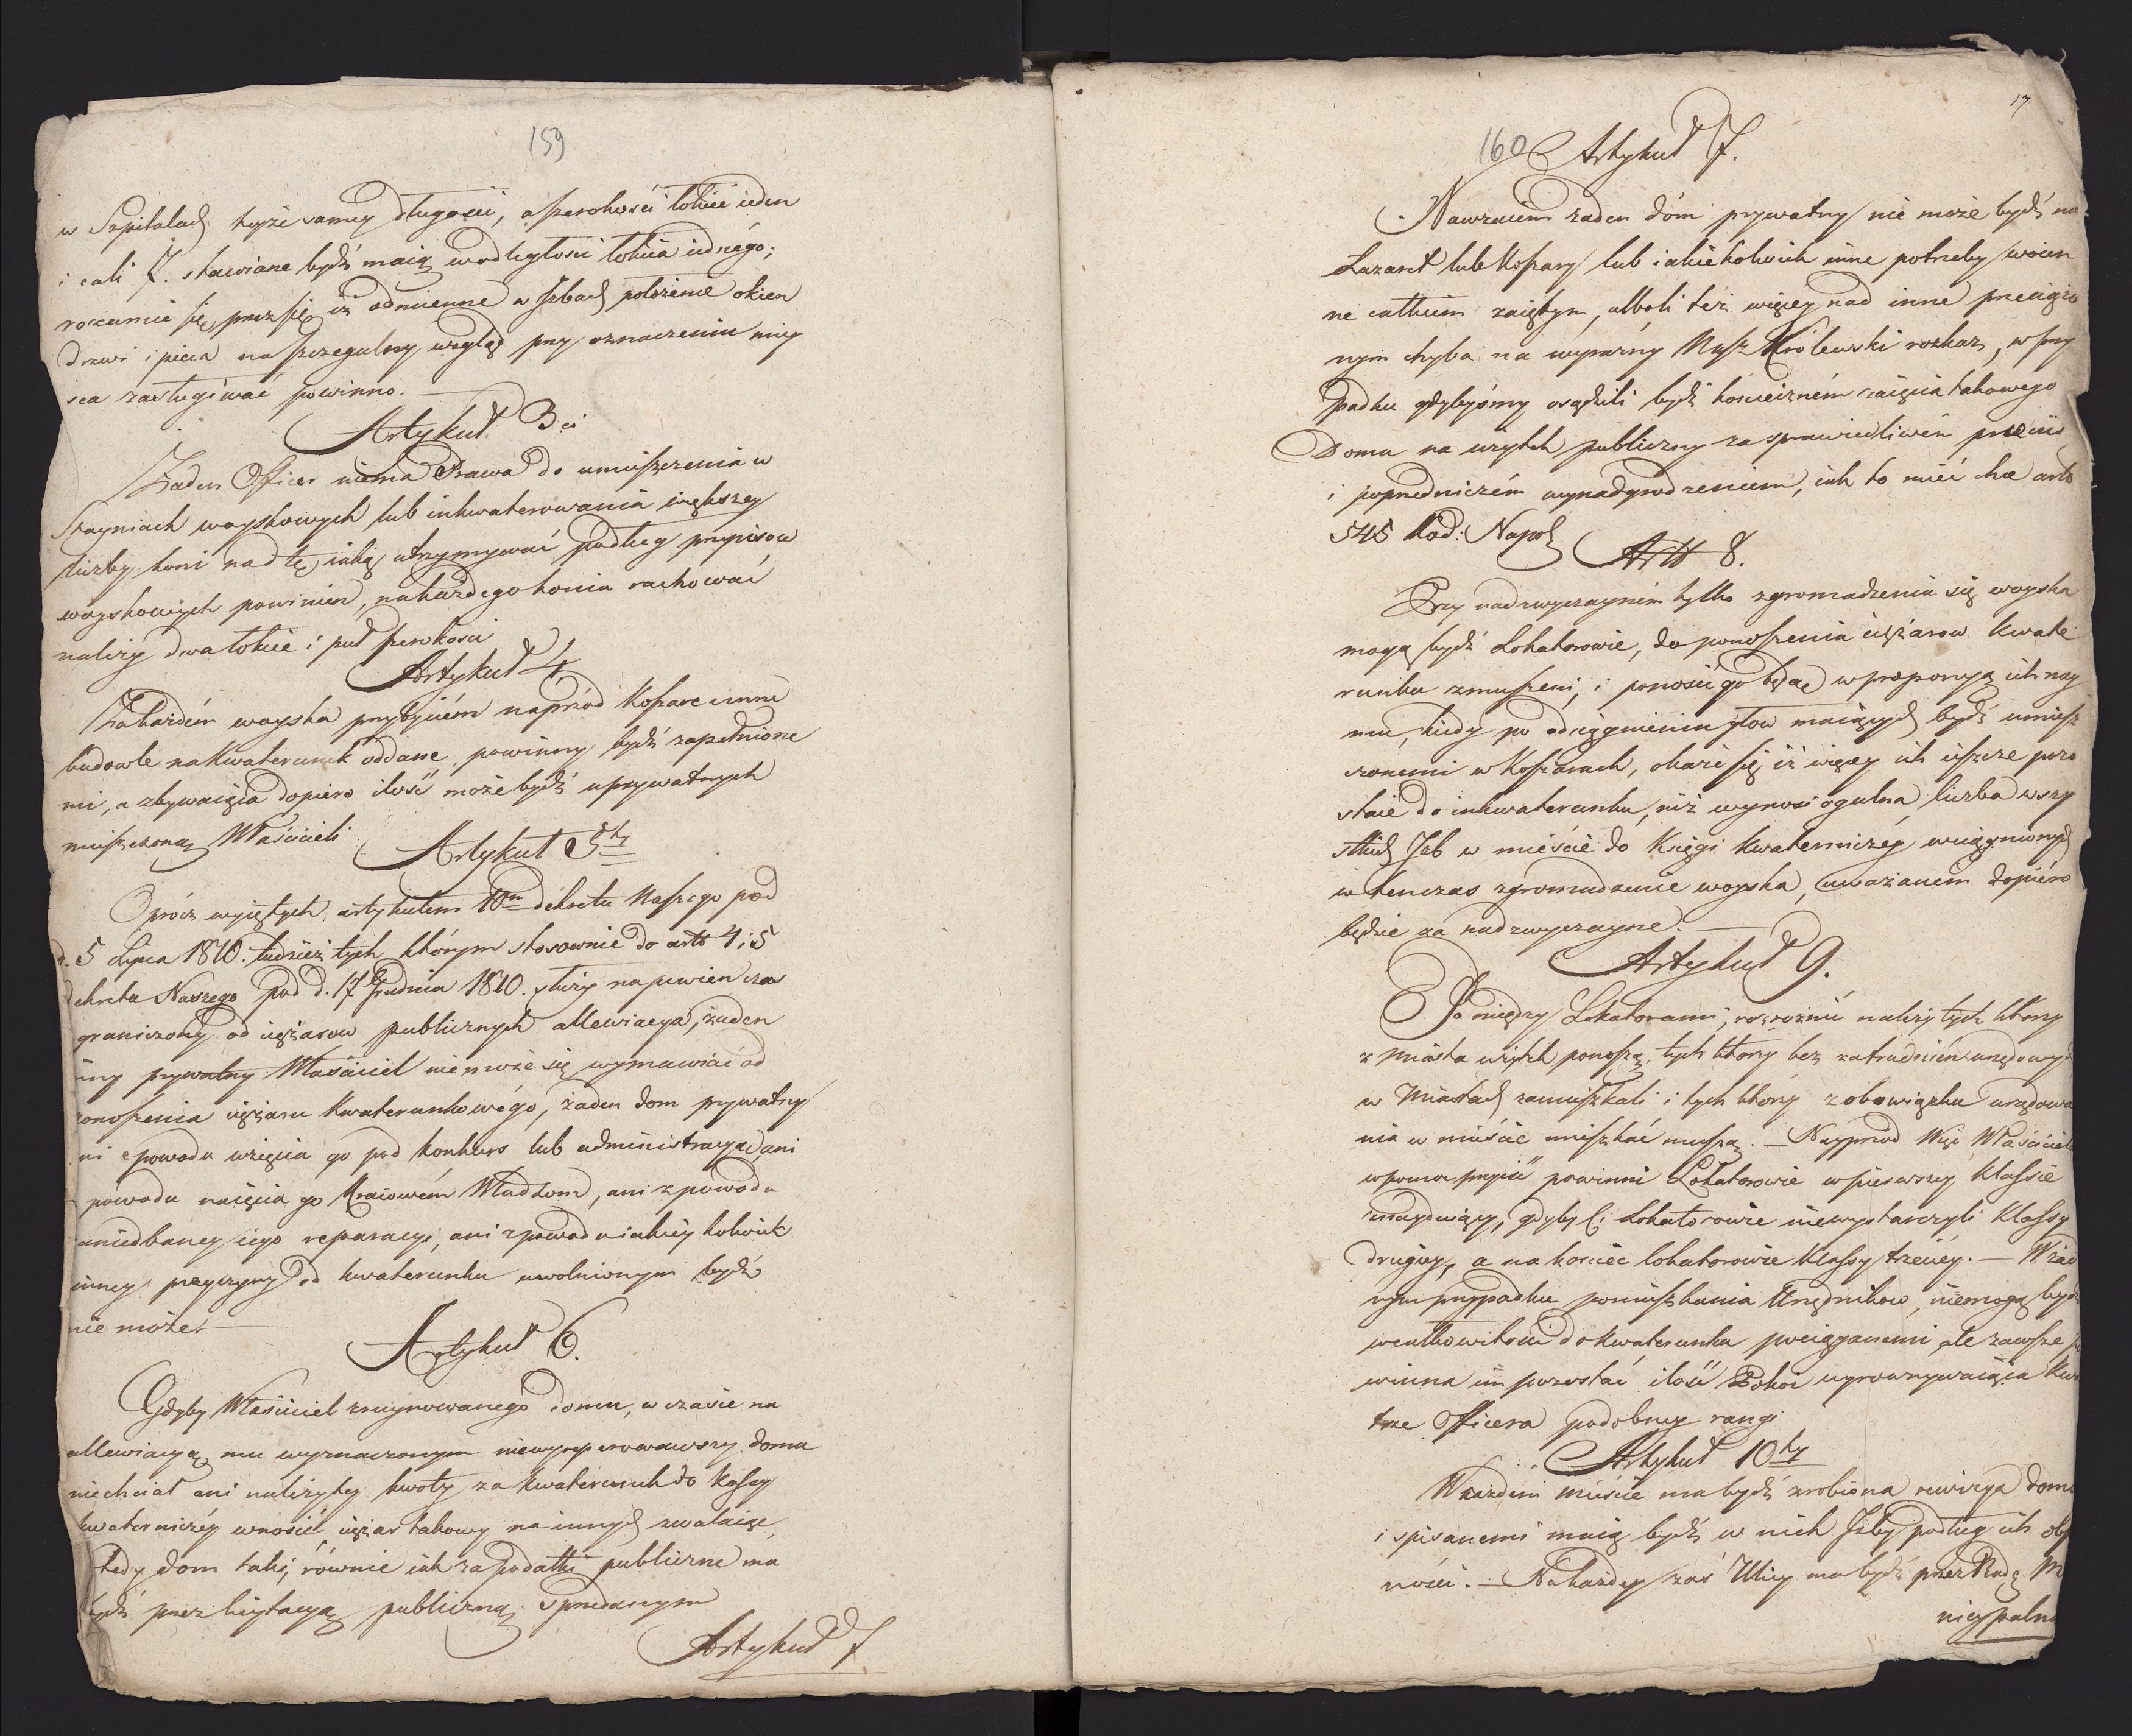 159
w Szpitalach teyże samey długości, a szerokości łokieć ieden
i cali 7. stawiane bydź maią w odległości łokcia iednégo;
rozumie się przez się iż odmienne w Izbach położenie okien
drzwi i pieca na szczegulny wzgląd przy oznaczeniu miey
sca zasługiwać powinno. —
Artykuł 3ci
Żaden Officer niema Prawa do umieszczenia w
Stayniach woyskowych lub inkwaterowania większey
liczby koni nad tę iaką utrzymywać podług przepisow
woyskowych powinien, na każdego konia rachować
należy dwa łokcie i puł szerokości
Artykuł 4
Za każdém woyska przybyciém naprzód Koszare i inne
budowle na Kwaterunek oddane, powinny bydź zapełnione
mi, a zbywaiąca dopiero ilość może bydź u prywatnych
mieszczoną Właścicieli
Artykuł 5ty
Oprócz wyiętych artykułem 10m dekretu Naszego pod
d. 5 Lipca 1810. tudzież tych którym stosownie do artt 4 i 5
dekretu Naszego pod d. 17 Grudnia 1810. służy na pewien czas
graniczony od ciężarow publicznych allewiacya, żaden
inny prywatny Właściciel nie może się wymawiać od
ponoszenia ciężaru Kwaterunkowégo, żaden dom prywatny
ni z powodu wzięcia go pod konkurs lub administracyą, ani
powodu naięcia go Kraiowém Władzom, ani z powodu
aniedbaney iego reparacyi, ani z powodu iakiey kolwiek
inney przyczyny od kwaterunku uwolnionym bydź
nie może. —
Artykuł 6.
Gdyby Właściciel zruynowanego domu, w czasie na
allewiacyą mu wyznaczonym niewyreperowawszy domu
niechciał ani należytey kwoty za kwaterunek do kassy
kwaterniczéy wnosić, ciężar takowy na innych zwalaiąc
tedy dom taki, równie iak za podatki publiczne ma
bydź przez licytacyą publiczną sprzedanym
Artykuł 7
17
160 Artykuł 7.
Nawzaiem żaden dóm prywatny nie może bydź na
Lazaret lub Koszary lub iakiekolwiek inne potrzeby woien
ne całkiem zaiętym, alboli też więcey nad inne przeciążo
nym chyba na wyraźny Nasz Królewski rozkaz, w przy
padku gdybyśmy osądzili bydź konieczném zaięcia takowego
Domu na użytek publiczny za sprawiedliwém przecie
i poprzedniczém wynadgrodzeniem, iak to mieć chce artt
545 Kod: Napol
Artt 8.
Przy nadzwyczaynim tylko zgromadzeniu się woyska
mogą bydź Lokatorowie, do ponoszenia ciężarow kwate
runku zmuszeni, i ponosić go będą w proporcyą ich nay
mu, kiedy po odciągnieniu głow maiących bydź umiesz
czonemi w Koszarach, okaże się iż więcey ich ieszcze pozo
staie do inkwaterunku, niż wynosi ogulna liczba wszy
stkich Izb w mieście do Księgi kwaterniczéy wciągnionych
w tenczas zgromadzenie woyska, uważanem dopiéro
będzie za nadzwyczayne. —
Artykuł 9.
Pomiędzy Lokatorami, rozróżnić należy tych którzy
z miasta użytek ponoszą, tych którzy bez zatrudnién urzędowych
w Miastach zamieszkali i tych którzy z obowiązku urzędowa
nia w mieście mieszkać muszą. — Nayprzód Więc Właściciel
w pomoc przyiść powinni Lokatorowie w pierwszey klassie
znayduiący, gdyby ci Lokatorowie niewystarczyli klassy
drugiey, a na koniec lokatorowie klassy trzeciéy. — W żad
nym przypadku pomieszkania Urzędników, niemogą bydź
w całkowitości do kwaterunku pociąganemi ale zawsze po
winna im pozostać ilość Pokoi wyrównywaiąca kwa
trze Officera podobney rangi
Artykuł 10ty
W każdem mieście ma bydź zrobiona rewizya dom
i spisanemi maią bydź w nich Izby podług ich ob
ności. — Na każdey zaś Ulicy ma bydź przez Radę M
nicypaln